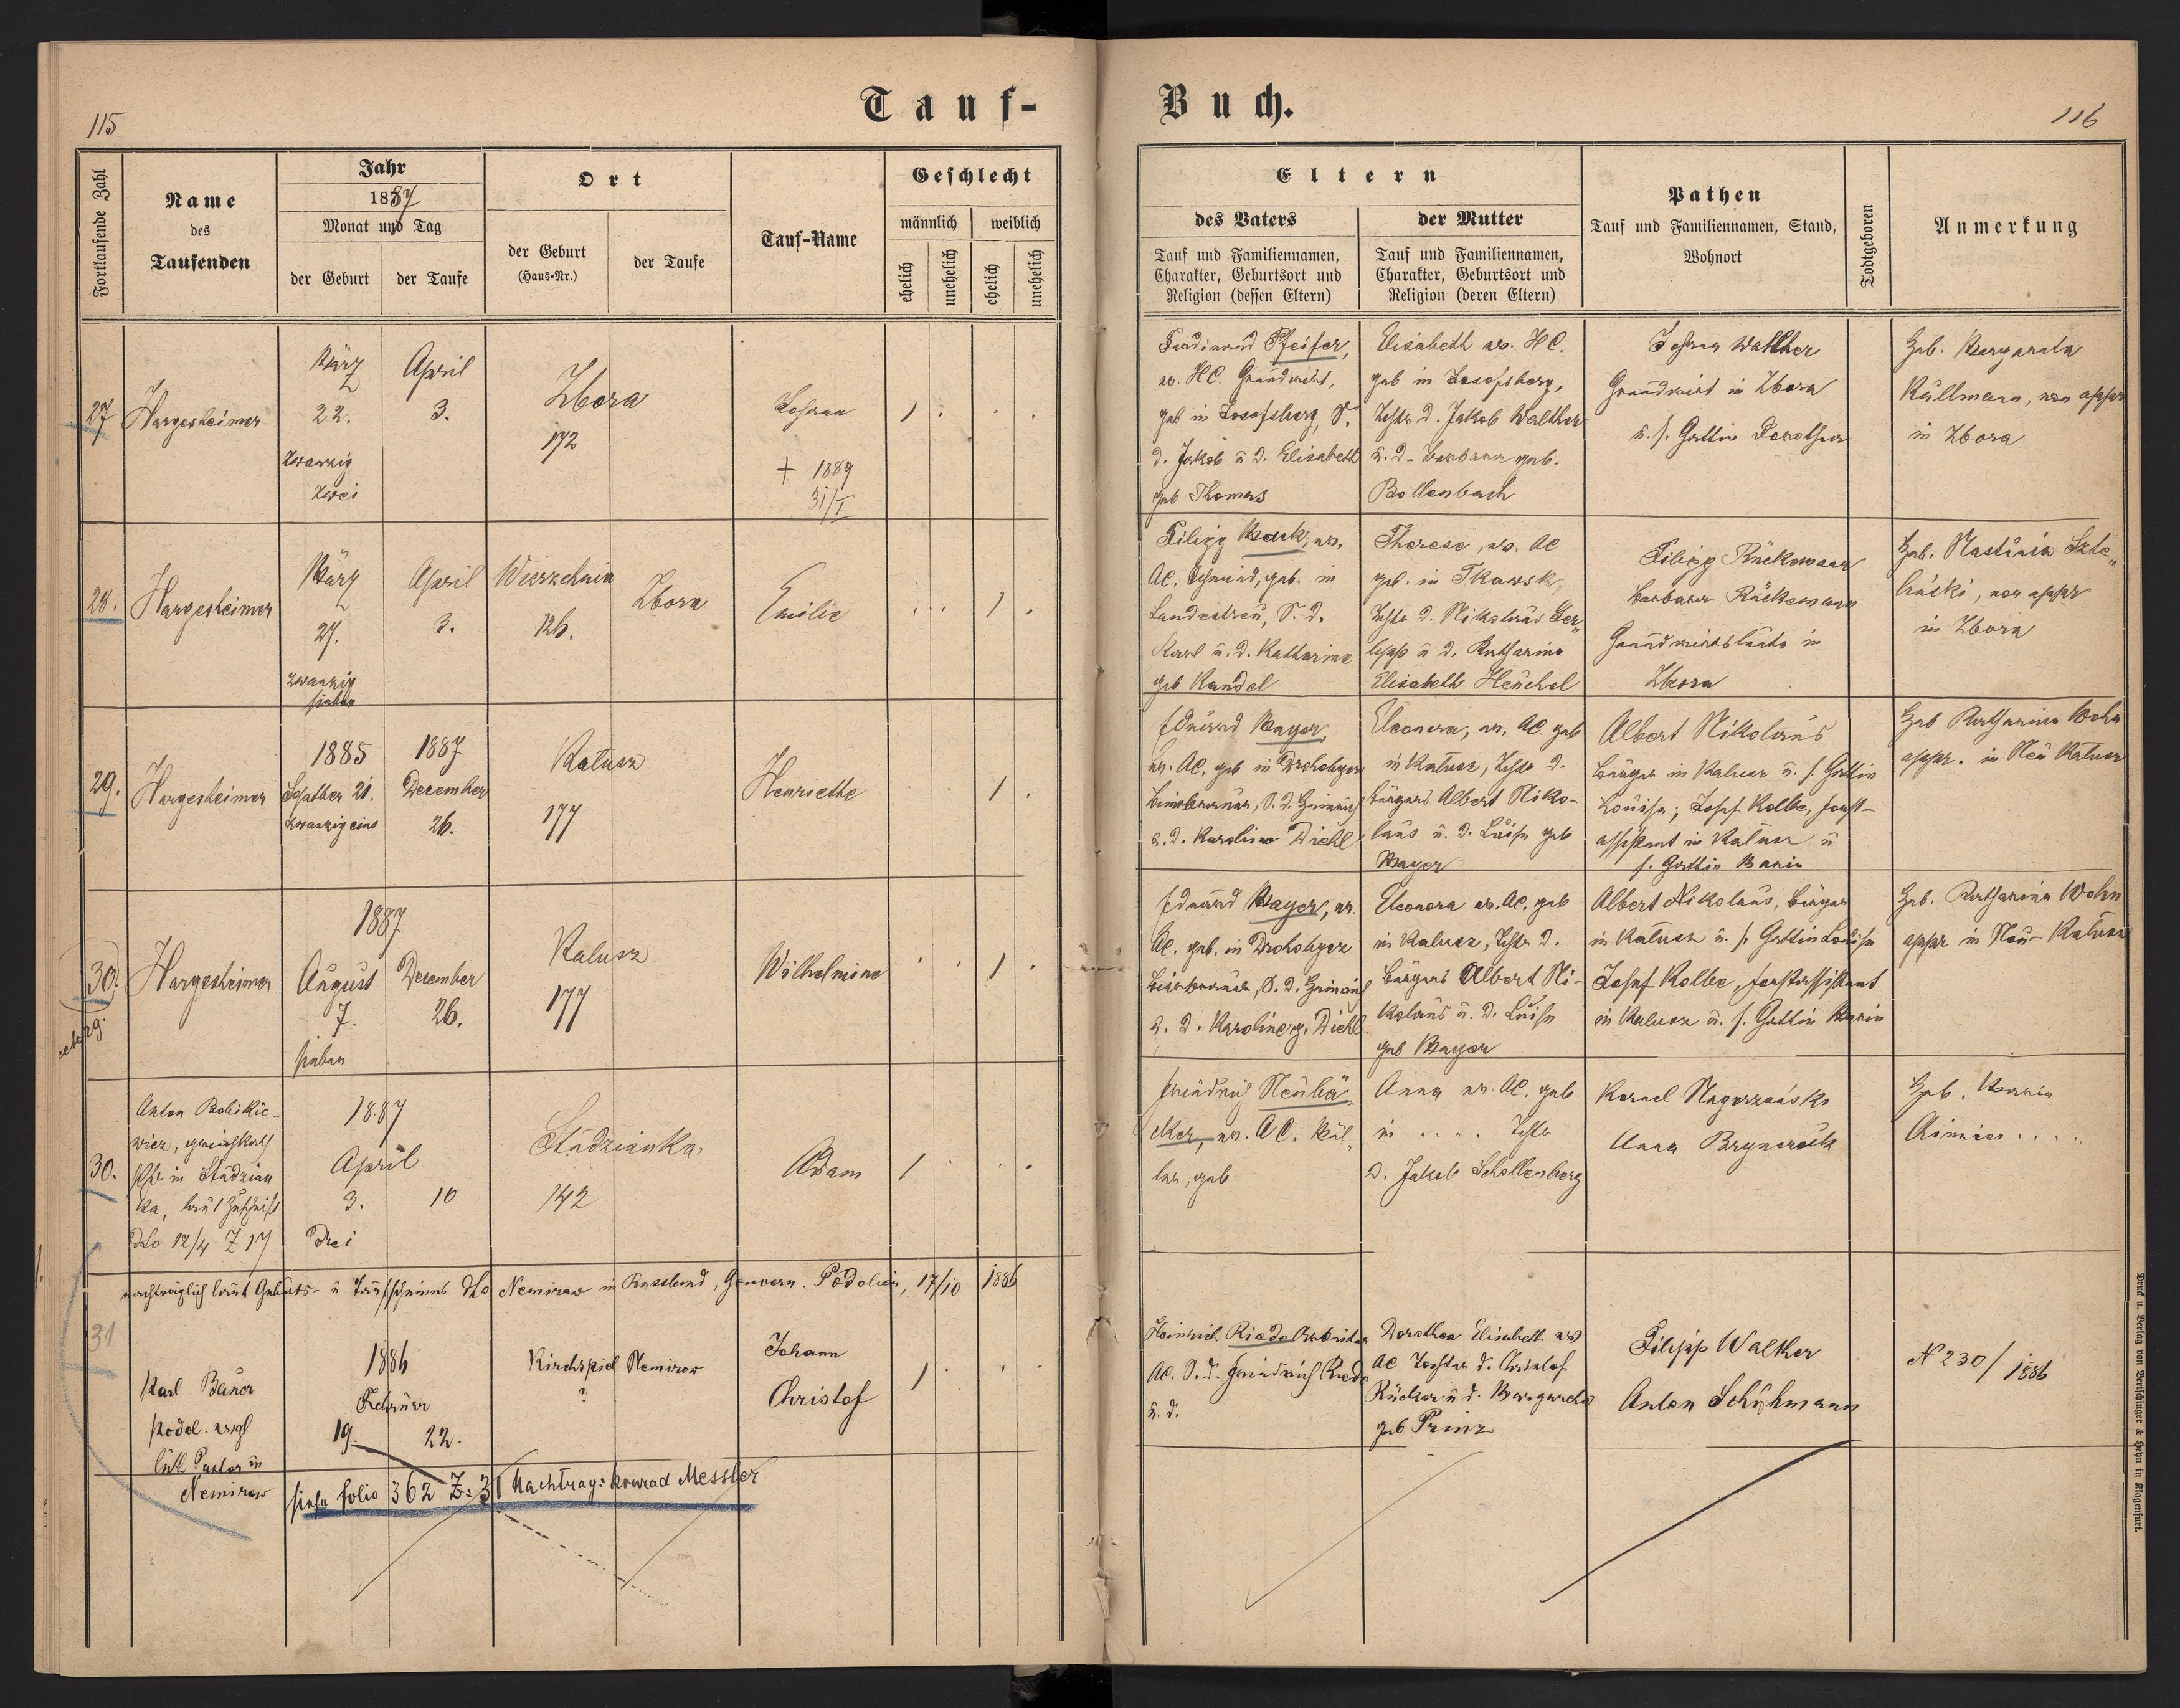 115
Tauf-
Fortlaufende Zahl
Name
des
Taufenden
Jahr
1887
Monat und Tag
der Geburt
der Taufe
Ort
der Geburt
(Haus-Nr.)
der Taufe
Tauf-Name
Geschlecht
männlich
weiblich
ehelich
unehelich
ehelich
unehelich
27
Hargesheimer
März
22.
zwanzig
zwei
April
3.
Zbora
172
Johann
† 1889
31/I
28.
Hargesheimer
März
27.
zwanzig
sieben
April
3.
Wierzchnia
126.
Zbora
Emilie
29.
Hargesheimer
1885
21.
zwanzig eins
1887
December
26.
Kalusz
177
Henriette
30.
Hargesheimer
1887
August
7.
sieben
December
26.
Kalusz
177
Wilhelmine
30.
Anton
in Studzian
ka, laut Zuschrift
dto 12/4 Z 17
1887
April
3.
10
Drei
Studzianka
142
Adam
nachträglich laut Geburts- u Taufscheines dto Nemirow in Russland, Gouvern. Podolien, 17/10 1886
31
Karl Bauer
podol. evgl
luth Pastor in
Nemirow
1886
Februar
19.
22.
Kirchspiel Nemirow
?
Johann
Christof
siehe folio 362 Z: 31 Nachtrag: Konrad Messler
Buch.
116
Eltern
des Vaters
Tauf und Familiennamen,
Charakter, Geburtsort und
Religion (dessen Eltern)
der Mutter
Tauf und Familiennamen,
Charakter, Geburtsort und
Religion (deren Eltern)
Pathen
Tauf und Familiennamen, Stand,
Wohnort
Todtgeboren
Anmerkung
Ferdinand Pfeifer,
ev. HC. Grundwirt,
geb in Josefsberg, S.
d. Jakob u d. Elisabeth
geb Thomas
Elisabeth ev. HC.
geb in Josefsberg,
Tochter d. Jakob Walther
u. d. Barbara geb.
Bollenbach
Johann Walther
Grundwirt in Zbora
u. s. Gattin Dorothea
Heb. Margareta
Kullmann, non appr
in Zbora
Filipp Mauk, ev.
AC. Schmied, geb. in
Landestreu, S. d.
Karl u. d. Katharine
geb Kandel
Therese, ev. AC
geb. in Tkawsk,
Tochter d. Nikolaus Ger„
lepp u d. Katharina
Elisabeth Heuchel
Filipp Rückemann
Barbara Rückemann
Grundwirtsleute in
Zbora
Heb. Nastunia
non appr
in Zbora
Eduard Mayer,
ev. AC, geb in Drohobycz
S. d. Heinrich
u. d. Karoline Diehl
Eleonora, ev. AC. geb
in Kalusz, Tochter d.
Bürgers Albert Niko-
laus u. d. Luise geb
Mayer
Albert Nikolaus
Bürger in Kalusz u. s. Gattin
Louise; Josef Kolbe, Forst-
assistent in Kalusz u
s. Gattin Maria
Heb Katharina Wohn
appr. in Neu Kalusz
Eduard Mayer, ev.
AC. geb. in Drohobycz
S. d. Heinrich
u. d. Karoline g. Diehl
Eleonora ev. AC. geb
in Kalusz, Tochter d.
Bürgers Albert Ni-
kolaus u. d. Luise
geb Mayer
Albert Nikolaus, Bürger
in Kalusz u. s. Gattin Louise
Josef Kolbe, Forstassistent
in Kalusz u. s. Gattin Maria
Heb. Katharina Wohn
appr in Neu-Kalusz
Friedrich Neubä„
cker, ev. AC. Mül„
ler, geb
Anna ev. AC. geb
in .... Tochter
d. Jakob Schollenberg
Kornel
Anna
Heb. Maria
Heinrich Riede
AC. S. d. Friedrich Riede
u. d.
Dorothea Elisabeth ev
AC Tochter d. Christof
Rücker u d. Margaretha
geb Prinz
Filipp Walker
Anton Schuhmann
N 230/1886
Druck u. Verlag von Bertschinger & Heyn in Klagenfurt.